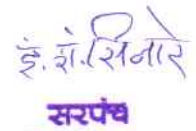 इं. शं. सिनारे
सरपंच